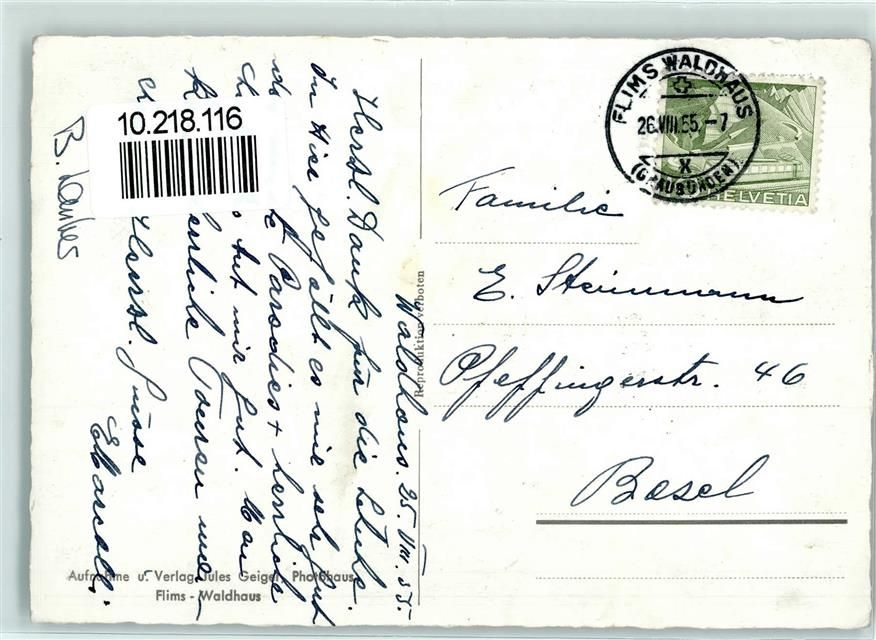 10.218.116
FLIMS WALDHAUS
26.VIII.55.-7
X
(GRAUBÜNDEN)
HELVETIA
Familie
E. Steinmann
Pfeffingerstr. 46
Basel
Reproduktion verboten
Waldhaus. 25. VIII. 55.
Herzl. Dank für die Karte.
Im Hier gefällt es mir sehr gut
Paradies + herrliche
tut mir gut.
herrliche Touren
Herzl. Grüsse
Marcell.
B.
Aufnahme u. Verlag Jules Geiger, Photohaus
Flims - Waldhaus